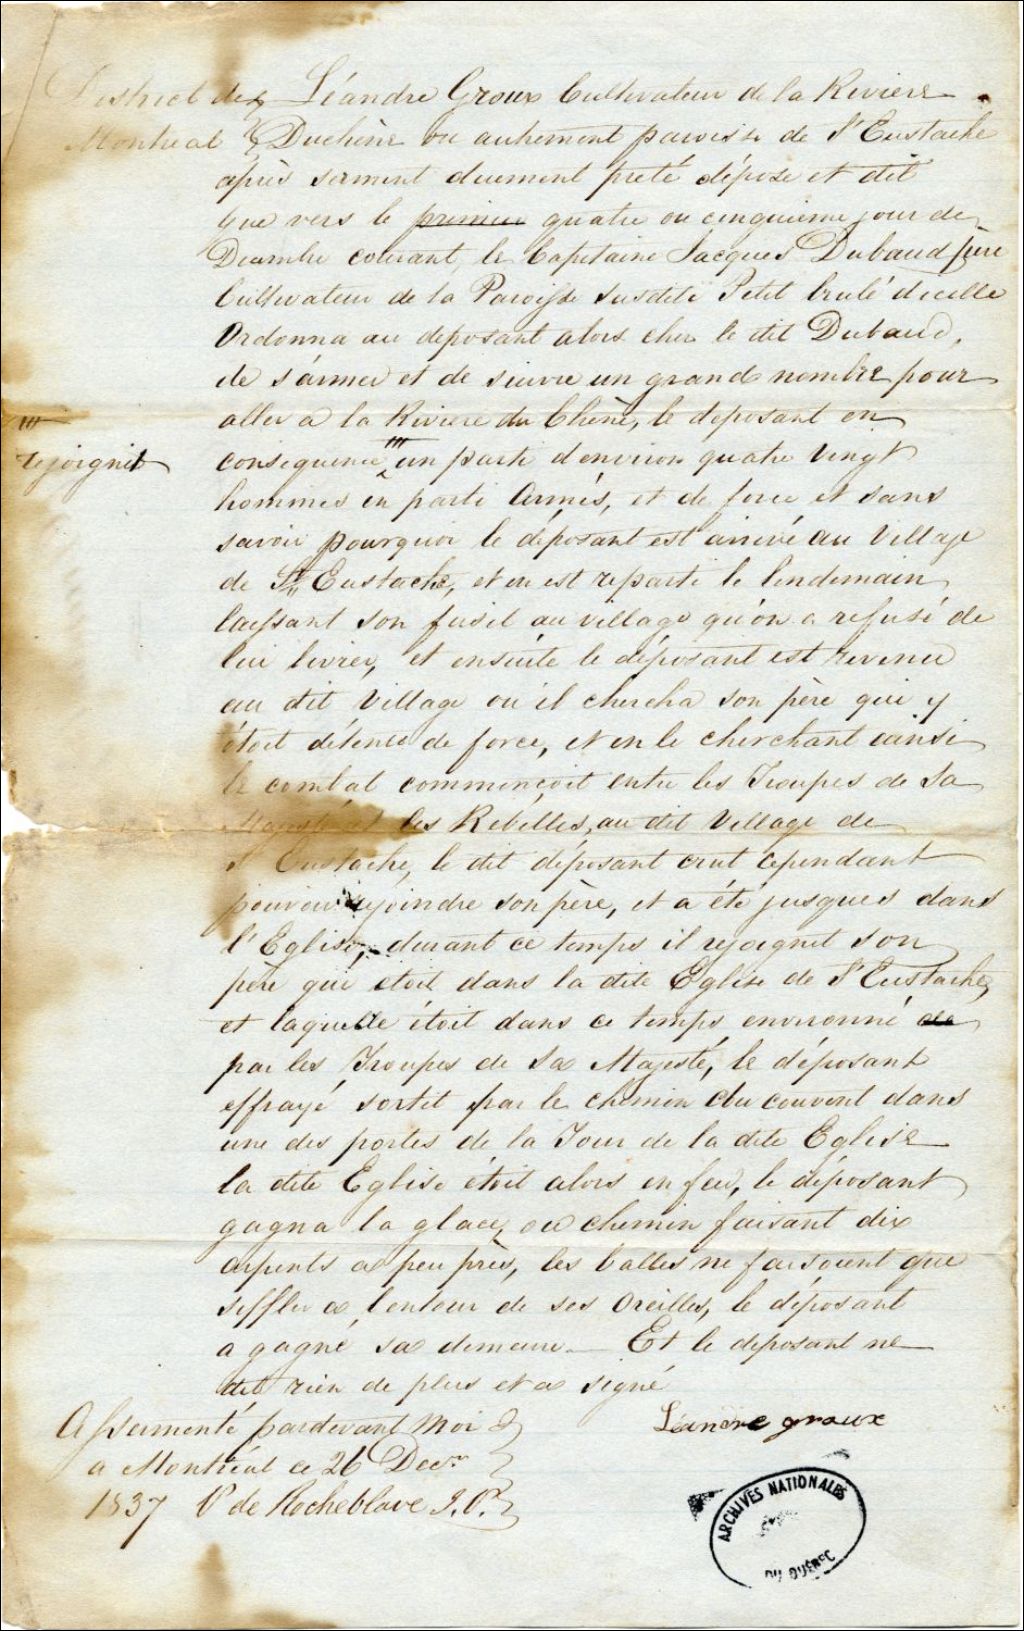 District de } Léandre Groux Cultivateur de la Riviere
Montreal } Duchêne ou autrement paroisse de St Eustache
après serment duement preté dépose et dit
que vers le premier quatre ou cinquieme jour de
Decembre courant, le Capitaine Jacques Dubaud père
Cultivateur de la Paroisse susdite Petit brulé d'icelle
Ordonna au deposant alors chez le dit Dubaud,
de s'armer et de suivre un grand nombre pour
aller a la Riviere du Chêne, le deposant en
consequence un parti d'environ quatre Vingt
rejoignit
hommes en parti Armés, et de force et sans
savoir pourquoi le déposant est arrivé au Village
de St Eustache, et en est reparti le lendemain,
laissant son fusil au village qu'on a refusé de
lui livrer, et ensuite le déposant est revenu
au dit Village ou il chercha son père qui y
étoit détenu de force, et en le cherchant ainsi
le combat commençoit entre les Troupes de Sa
Majesté et les Rebelles, au dit Village de
St Eustache, le dit déposant crut cependant
pouvoir rejoindre son père, et a été jusques dans
l'Eglise, durant ce temps il rejoignit son
père qui etoit dans la dite Eglise de St Eustache,
et laquelle étoit dans ce temps environné de
par les Troupes de Sa Majesté, le déposant
effrayé sortit par le chemin du couvent dans
une des portes de la Tour de la dite Eglise
la dite Eglise étoit alors en feu, le déposant
gagna la glace, ou chemin faisant dix
arpents a peu près, les balles ne faisoient que
siffler a l'entour de ses Oreilles, le déposant
a gagné sa demeure. Et le deposant ne
dit rien de plus et a signé
Assermenté pardevant moi }
Léandre groux
a Montréal ce 26 Decr }
1837 P de Rocheblave J.P. }
ARCHIVES NATIONALES
DU QUÉBEC